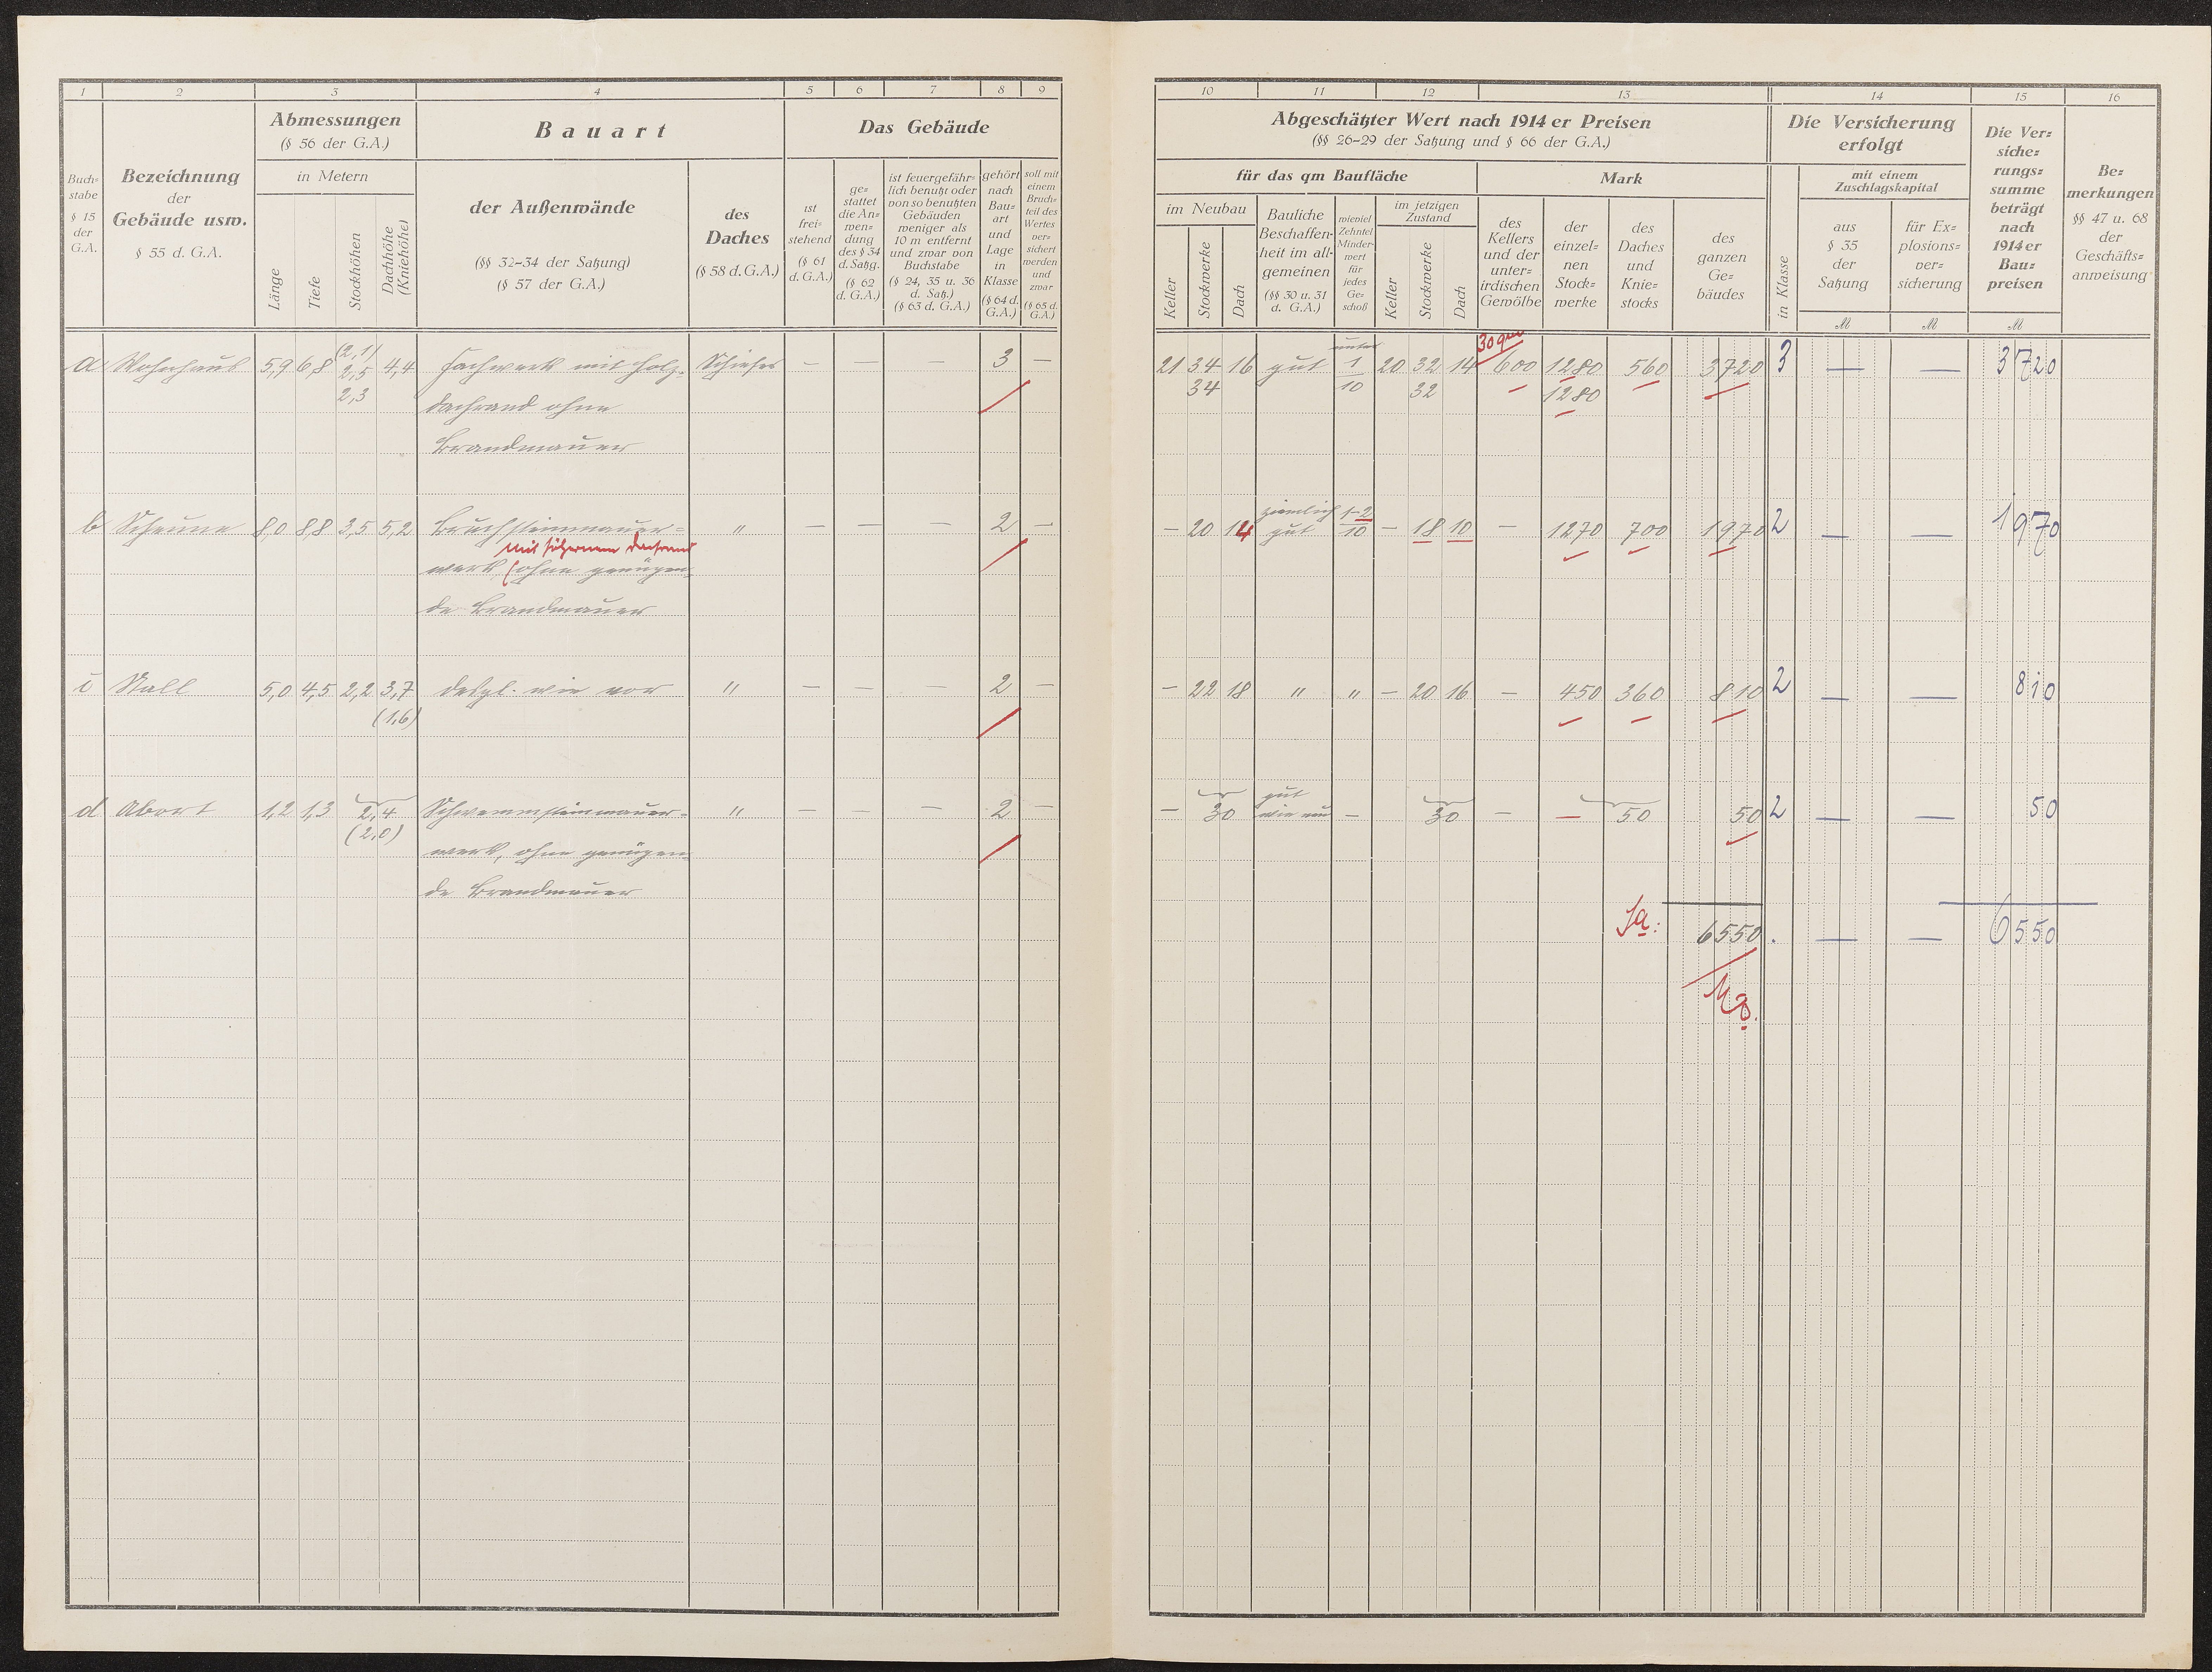 1 2 3 4 5 6 7 8 9
Buch=
stabe
§ 15
der
G.A.
Bezeichnung
der
Gebäude usw.
§ 55 d. G.A.
Abmessungen
(§ 56 der G.A.)
in Metern
Länge
Tiefe
Stockhöhen
Dachhöhe
(Kniehöhe)
Bauart
der Außenwände
(§§ 32-34 der Satzung)
(§ 57 der G.A.)
des
Daches
(§ 58 d. G.A.)
Das Gebäude
ist
frei=
stehend
(§ 61
d. G.A.)
ge=
stattet
die An=
wen=
dung
des § 34
d. Satzg.
(§ 62
d. G.A.)
ist feuergefähr=
lich benutzt oder
von so benutzten
Gebäuden
weniger als
10 m entfernt
und zwar von
Buchstabe
(§ 24, 35 u. 36
d. Satz.)
(§ 63 d. G.A.)
gehört
nach
Bau=
art
und
Lage
in
Klasse
(§ 64 d.
G.A.)
soll mit
einem
Bruch=
teil des
Wertes
ver=
sichert
werden
und
zwar
(§ 65 d.
G.A.)
a Wohnhaus 5,9 6,8 (2,1) 4,4 Fachwerk mit Holz- Schiefer — — — 3 —
2,5
2,3 dachrand ohne
Brandmauer
b Scheune 8,0 8,8 3,5 5,2 Bruchsteinmauer= " — — — 2 —
mit hölzernem Dachrand
werk (ohne genügen=
de Brandmauer
c Stall 5,0 4,5 2,2 3,7 desgl. wie vor " — — — 2 —
(1,6)
d Abort 1,2 1,3 2,4 Schwemmsteinmauer= " — — — 2 —
(2,0)
werk, ohne genügen=
de Brandmauer
10 11 12 13 14 15 16
Abgeschätzter Wert nach 1914 er Preisen
(§§ 26-29 der Satzung und § 66 der G.A.)
für das qm Baufläche
im Neubau
Keller
Stockwerke
Dach
Bauliche
Beschaffen=
heit im all=
gemeinen
(§§ 30 u. 31
d. G.A.)
wieviel
Zehntel
Minder=
wert
für
jedes
Ge=
schoß
im jetzigen
Zustand
Keller
Stockwerke
Dach
Mark
des
Kellers
und der
unter=
irdischen
Gewölbe
der
einzel=
nen
Stock=
werke
des
Daches
und
Knie=
stocks
des
ganzen
Ge=
bäudes
Die Versicherung
erfolgt
in Klasse
mit einem
Zuschlagskapital
aus
§ 35
der
Satzung
für Ex=
plosions=
ver=
sicherung
Die Ver=
siche=
rungs=
summe
beträgt
nach
1914 er
Bau=
preisen
Be=
merkungen
§§ 47 u. 68
der
Geschäfts=
anweisung
M M M
30 qm
unter
21 34 16 gut 1/10 20 32 14 600 1280 560 3720 3 — — 3720
34 32 1280
ziemlich
— 20 14 gut 1-2/10 — 18 10 — 1270 700 1970 2 — — 1970
— 22 18 " " — 20 16 — 450 360 810 2 — — 810
gut
— 30 wie neu — 30 — — 50 50 2 — — 50
Sa: 6550 . — — 6550